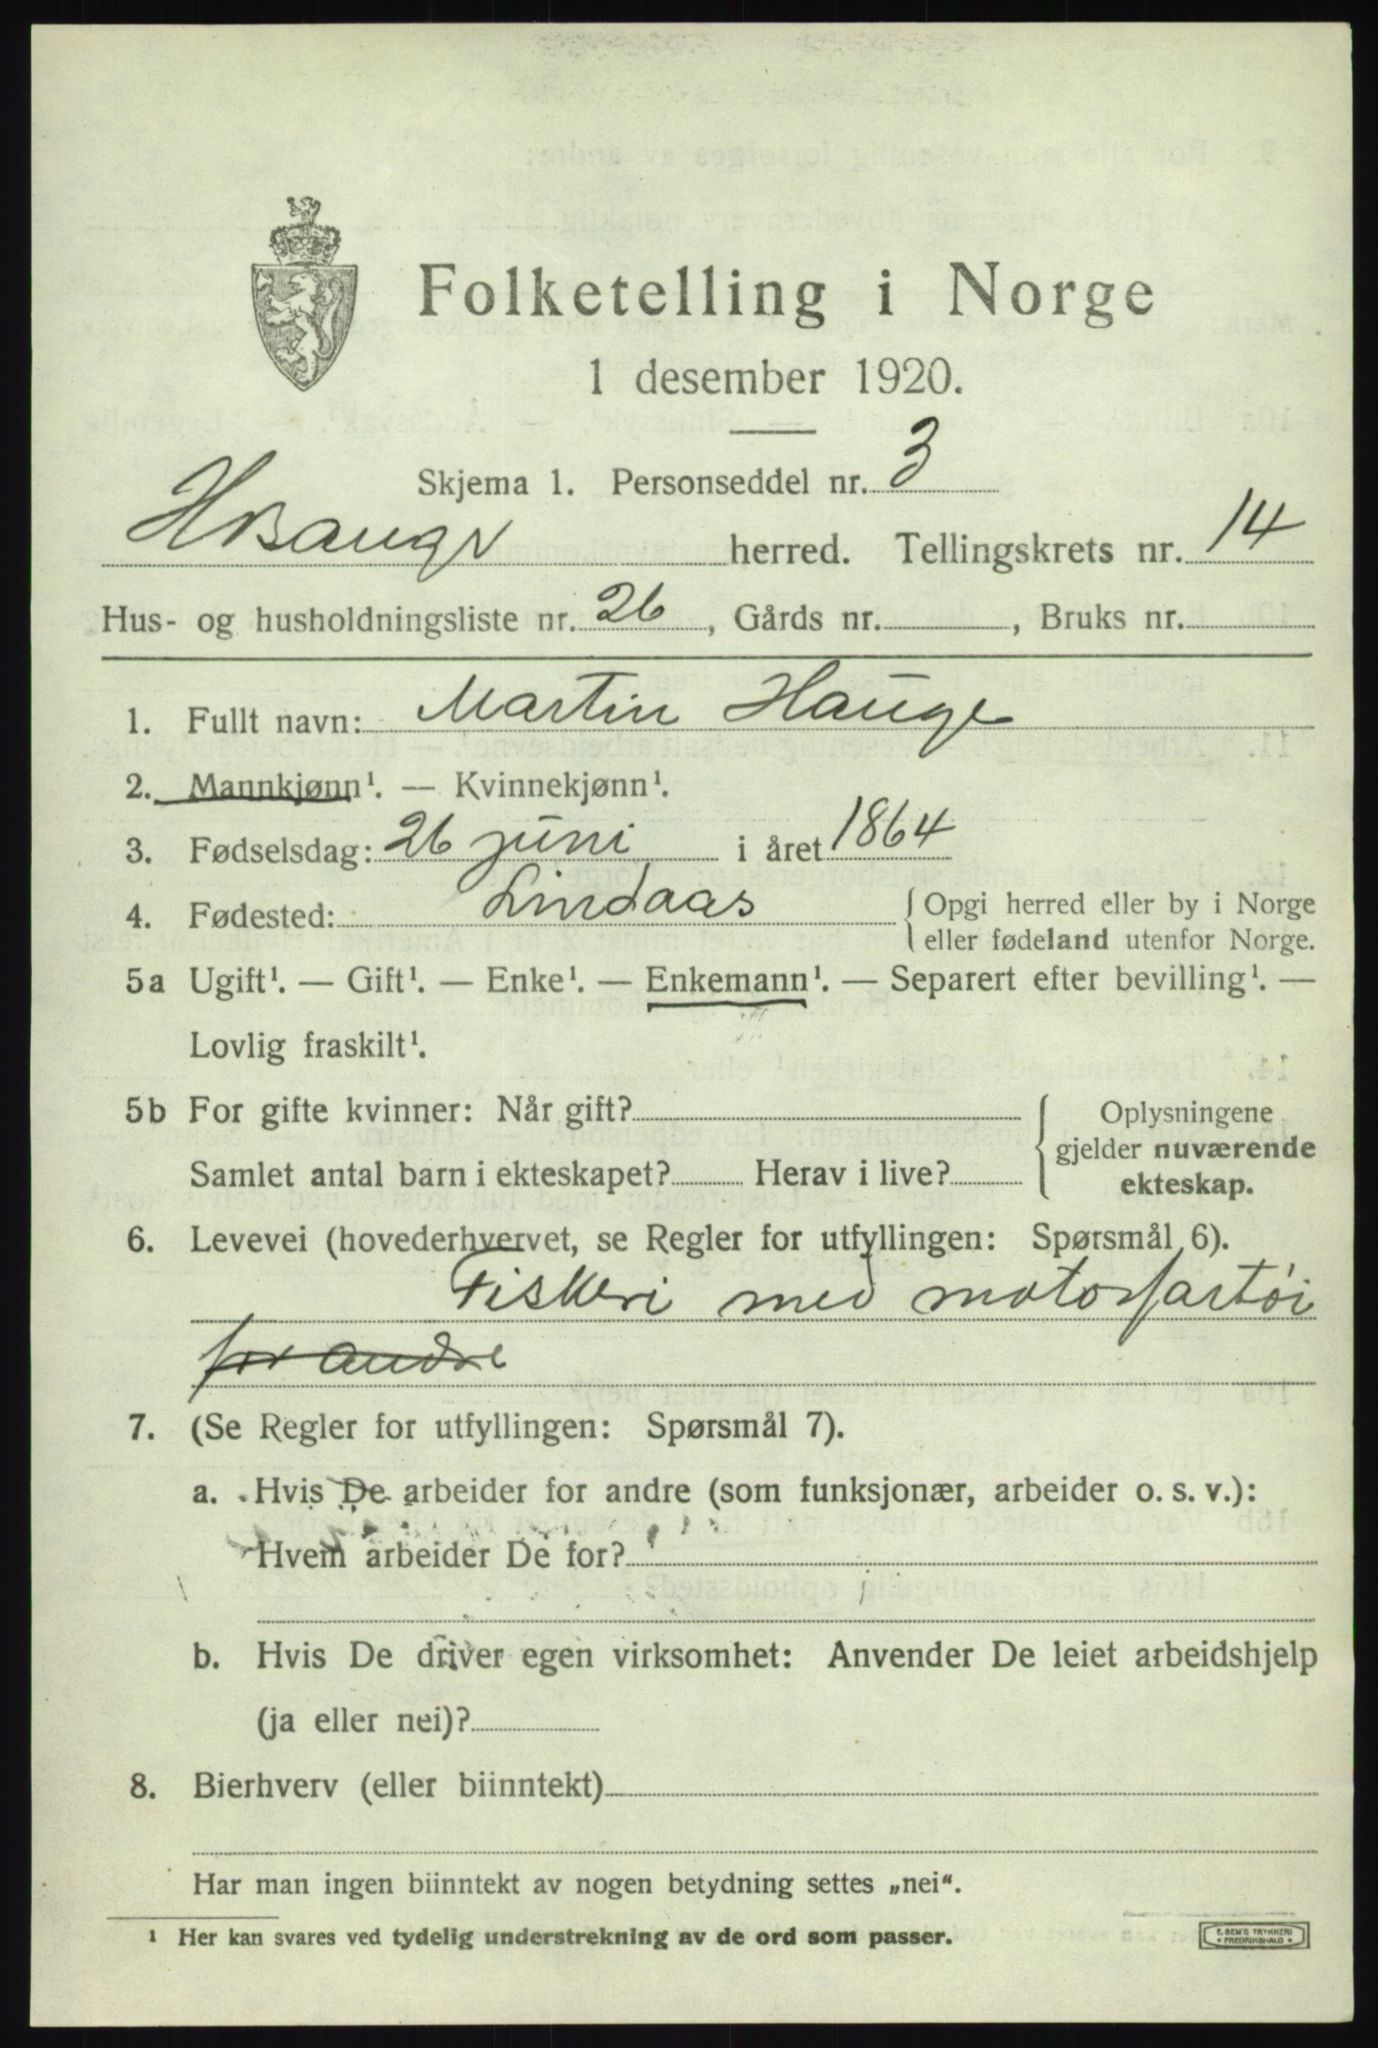 Folketelling i Norge
1 desember 1920.
Skjema 1. Personseddel nr. 3
herred. Tellingskrets nr. 14
Hus- og husholdningsliste nr. 26, Gårds nr. , Bruks nr.
1. Fullt navn: Martin Hauge
2. Mannkjønn¹. — Kvinnekjønn¹.
3. Fødselsdag: 26 juni i året 1864
4. Fødested: Lindaas { Opgi herred eller by i Norge
eller fødeland utenfor Norge.
5a Ugift¹. — Gift¹. — Enke¹. — Enkemann¹. — Separert efter bevilling¹. —
Lovlig fraskilt¹.
5b For gifte kvinner: Når gift? { Oplysningene
gjelder nuværende
Samlet antal barn i ekteskapet? Herav i live? ekteskap.
6. Levevei (hovederhvervet, se Regler for utfyllingen: Spørsmål 6).
Fiskeri med motorfartøi
for andre
7. (Se Regler for utfyllingen: Spørsmål 7).
a. Hvis De arbeider for andre (som funksjonær, arbeider o. s. v.):
Hvem arbeider De for?
b. Hvis De driver egen virksomhet: Anvender De leiet arbeidshjelp
(ja eller nei)?
8. Bierhverv (eller biinntekt)
Har man ingen biinntekt av nogen betydning settes „nei“.
¹ Her kan svares ved tydelig understrekning av de ord som passer.
E. SEM'S TRYKKERI
FREDRIKSHALD